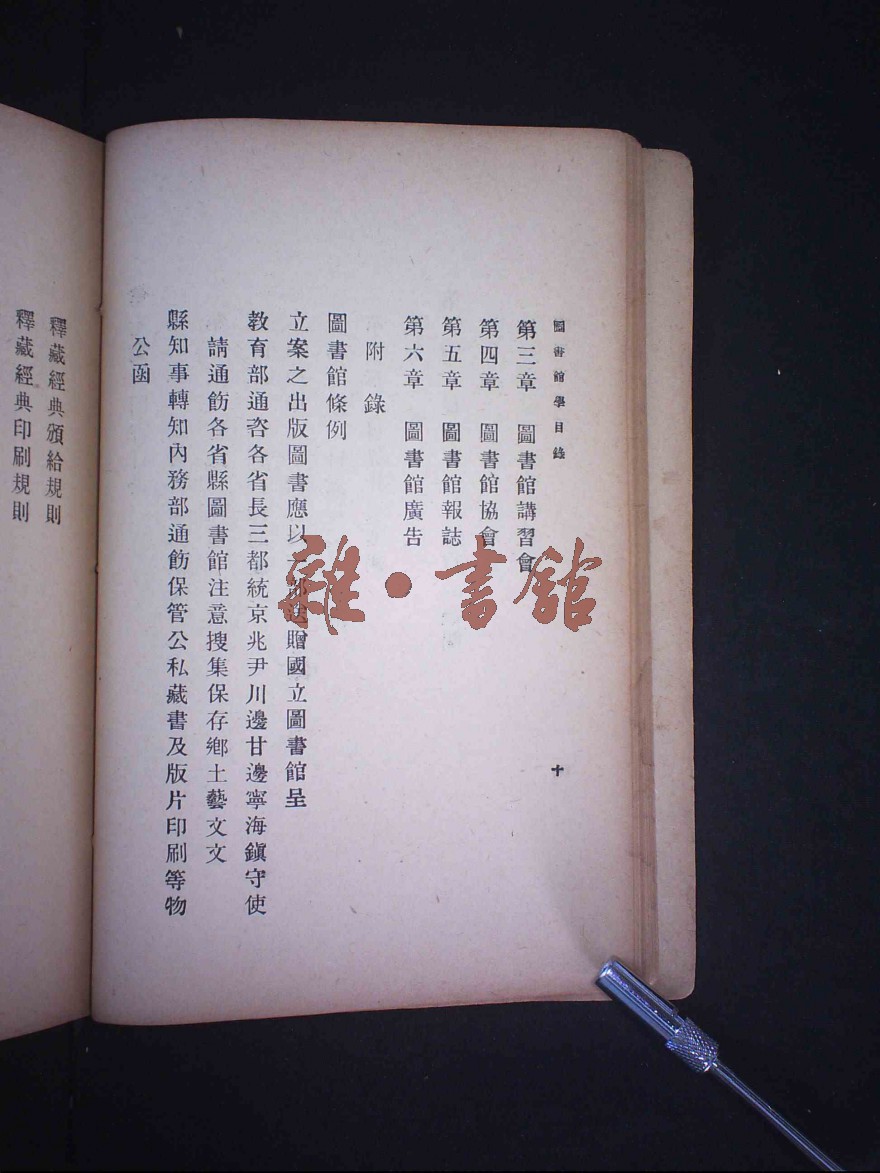 圖書館學目錄
十
第三章　圖書館講習會
第四章　圖書館協會
第五章　圖書館報誌
第六章　圖書館廣告
附錄
圖書館條例
立案之出版圖書應以一部送贈國立圖書館呈
教育部通咨各省長三都統京兆尹川邊甘邊寧海鎭守使
請通飭各省縣圖書館注意搜集保存鄉土藝文文
縣知事轉知內務部通飭保管公私藏書及版片印刷等物
公函
釋藏經典頒給規則
釋藏經典印刷規則
雜·書館